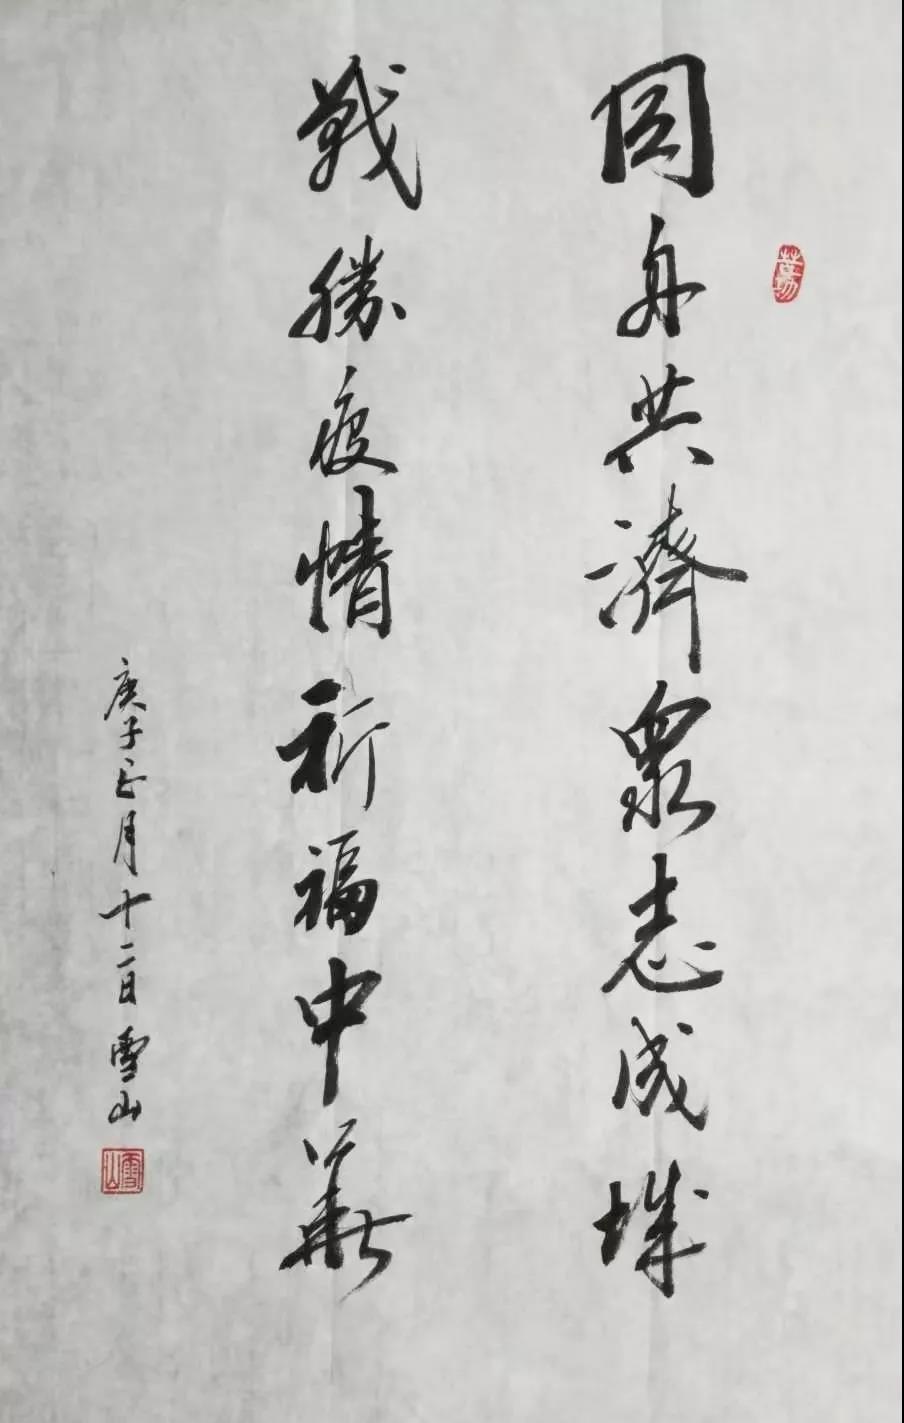 同舟共濟衆志成城
戰勝疫情祈福中華
庚子正月十二日雪山
雪山